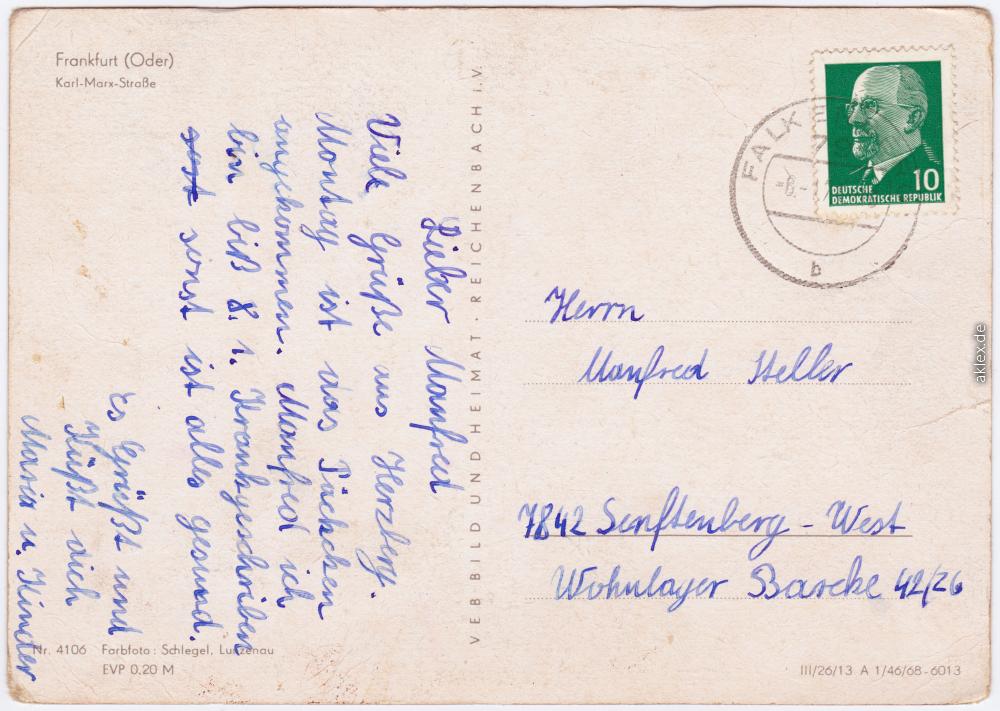 Frankfurt (Oder)
Karl-Marx-Straße
Lieber Manfred
Viele Grüße aus Herzberg.
Montag ist das Päckchen
angekommen. Manfred ich
bin biß 8. 1. Krankgeschriben
sonst ist alles gesund.
Es Grüßt und
Küßt dich
Maria u. Kinder
Nr. 4106 Farbfoto: Schlegel, Lunzenau
EVP 0,20 M
VEB BILD UND HEIMAT · REICHENBACH I. V.
FALK
b
DEUTSCHE
DEMOKRATISCHE REPUBLIK
10
Herrn
Manfred Heller
7842 Senftenberg - West
Wohnlager Baracke 42/26
III/26/13 A 1/46/68-6013
aklex.de